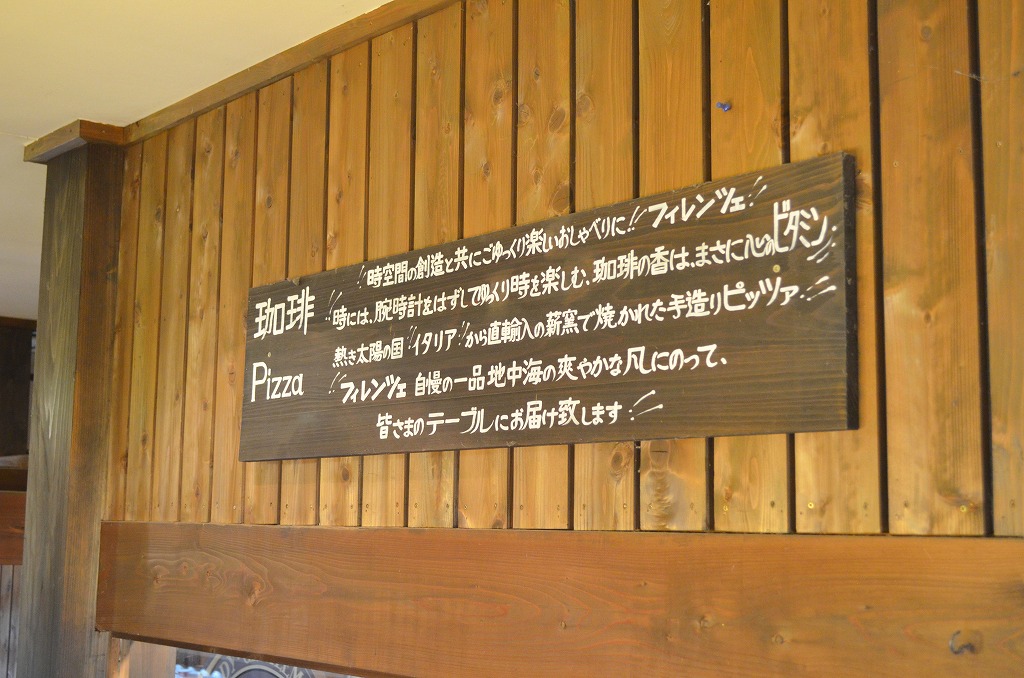 珈琲
Pizza
!!時空間の創造と共にごゆっくり楽しいおしゃべりに!!フィレンツェ!!
!!時には、腕時計をはずしてゆっくり時を楽しむ、珈琲の香は、まさに心のビタミン!!
熱き太陽の国"イタリア"から直輸入の薪窯で焼かれた手造りピッツァ!!
!!フィレンツェ 自慢の一品 地中海の爽やかな風にのって、
皆さまのテーブルにお届け致します!!